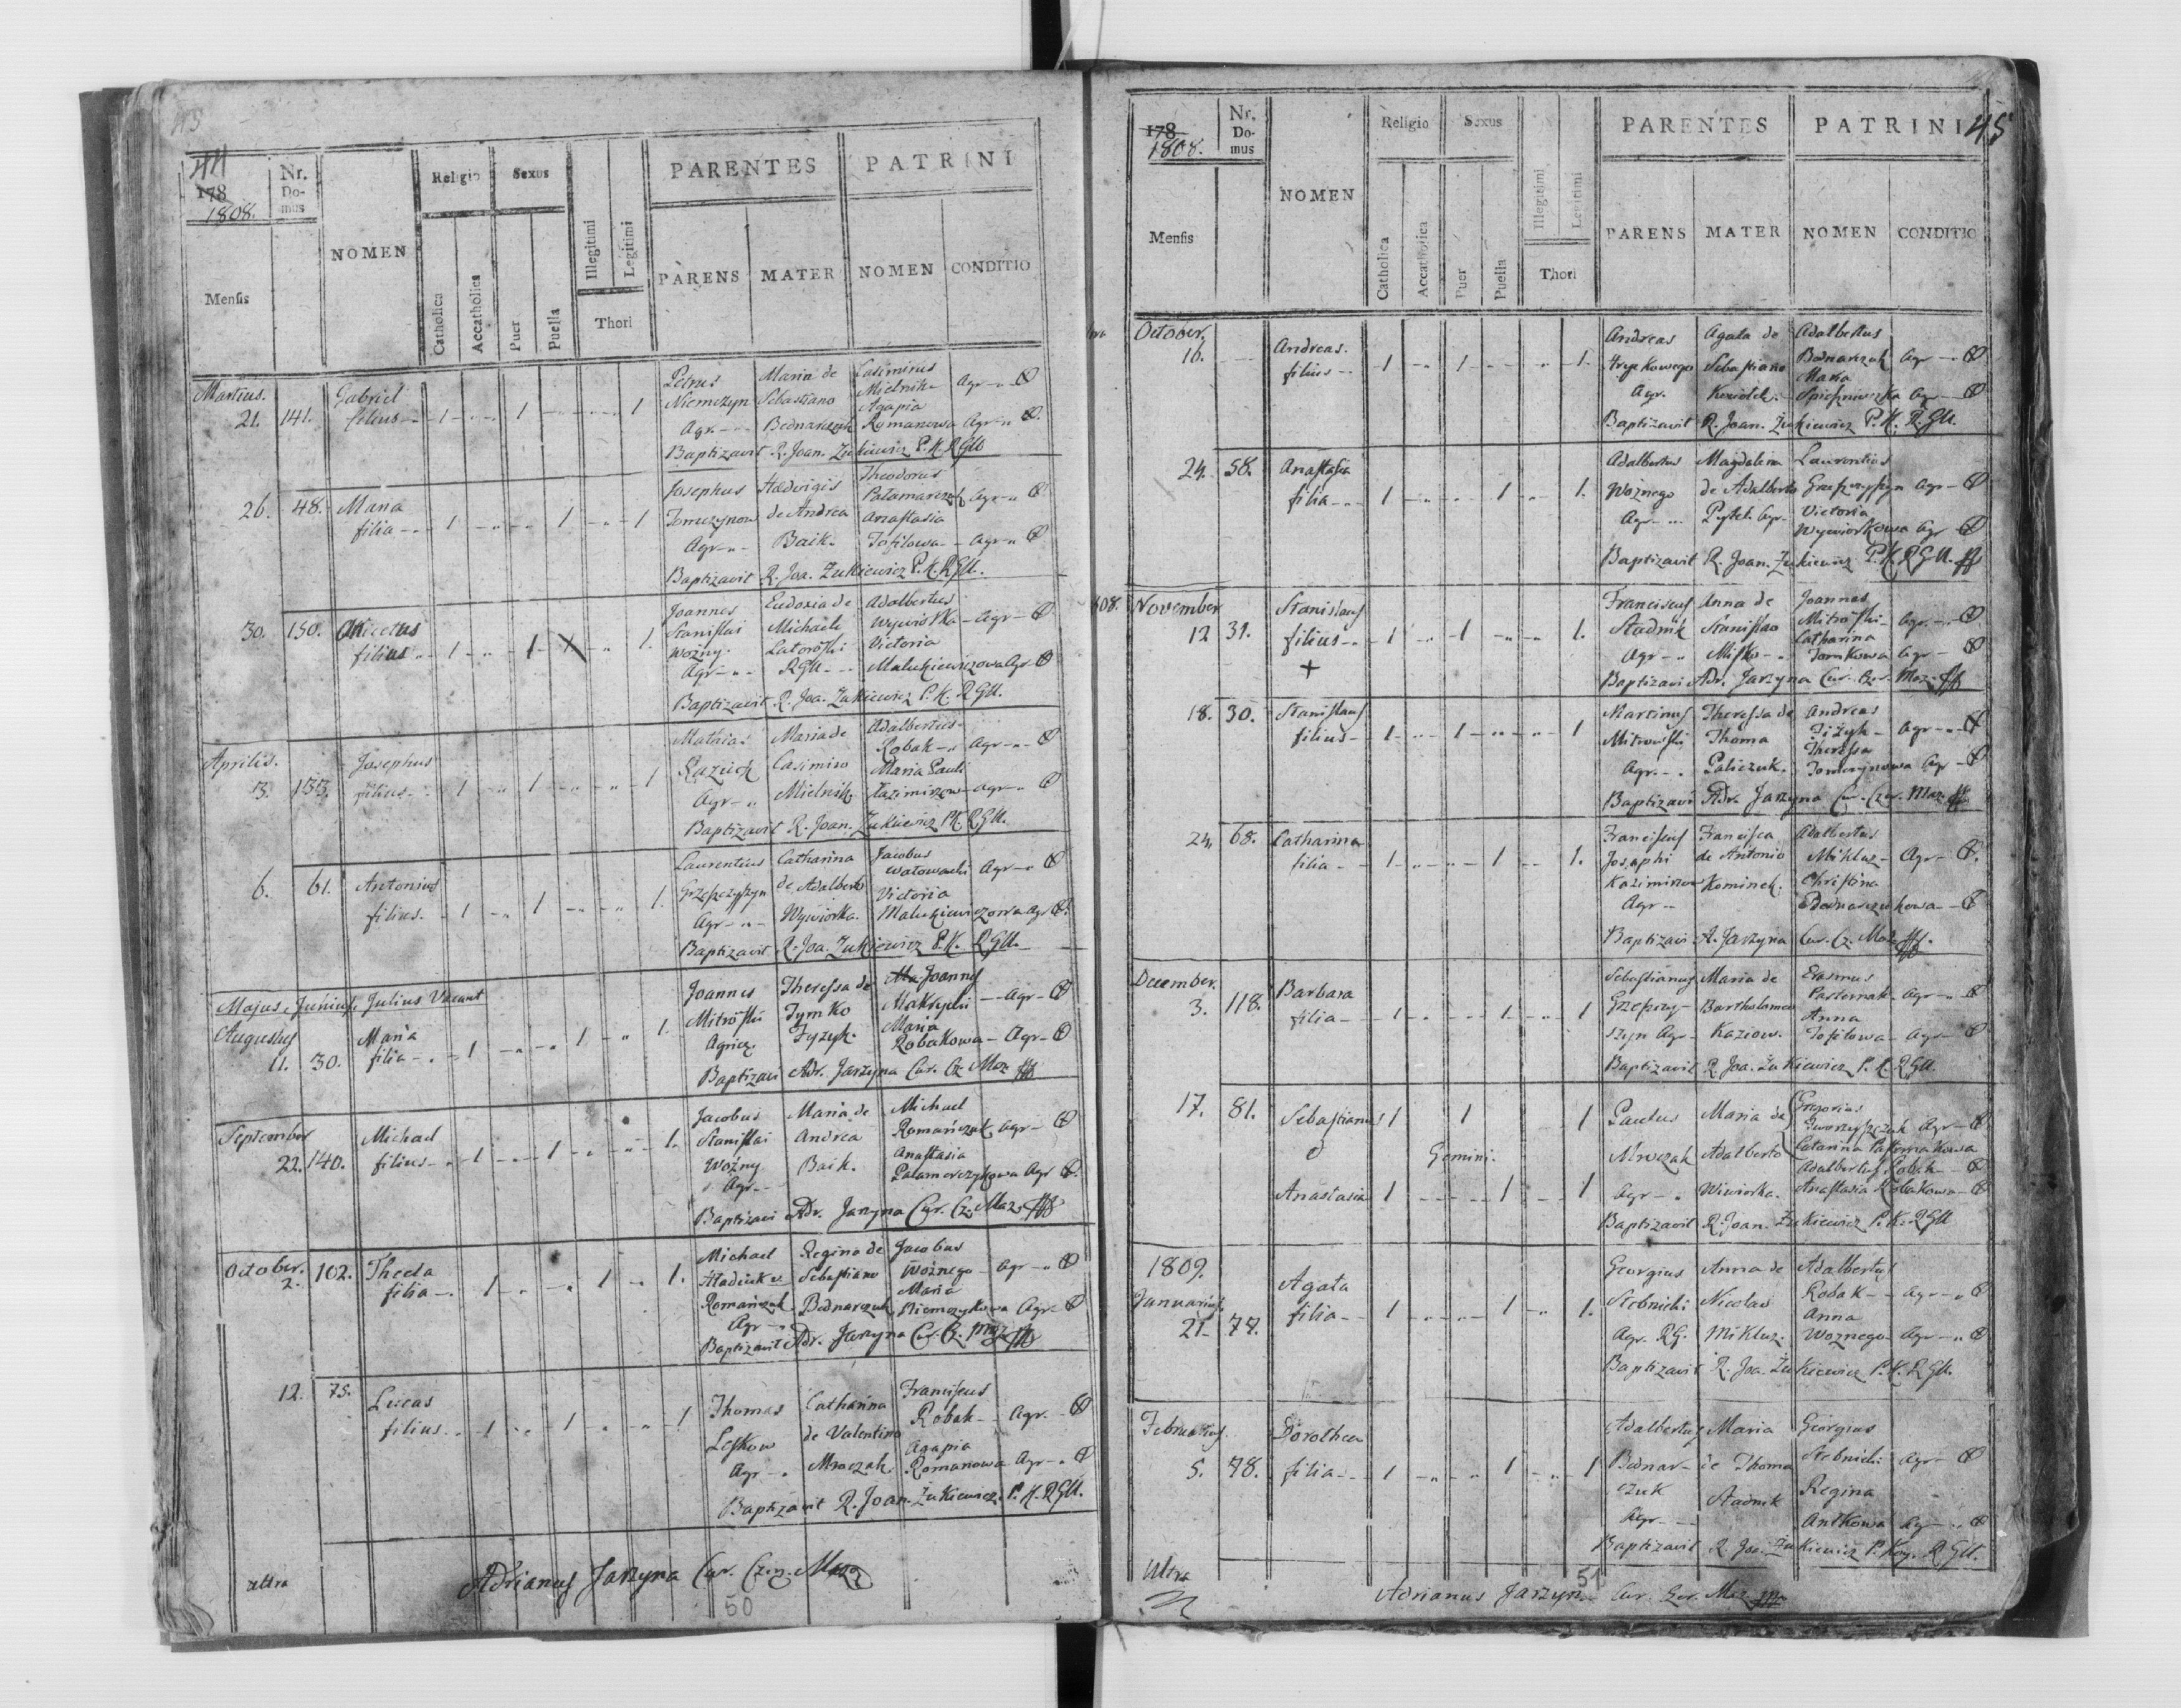 44
178
1808.
Nr. Domus
NOMEN
Religio
Sexus
PARENTES
PATRINI
Mensis
Catholica
Accatholica
Puer
Puella
Illegitimi
Legitimi
Thori
PARENS
MATER
NOMEN
CONDITIO
Martius.
21. 141. Gabriel filius 1 1 1
Petrus Niemczyn Agr.
Maria de Sebastiano Bednarczuk
Casimirus Mielnik Agr
Agapia Romanowa Agr
Baptizavit R. Joan. Żukiewicz P. K. RGU
26. 48. Maria filia 1 1 1
Josephus Tomczynow Agr
Hedvigis de Andrea Baik
Theodorus Palamarczuk Agr
Anastasia Tofilowa Agr
Baptizavit R. Joa. Żukiewicz P. K. RGU.
30. 150. Nicetus filius 1 1 X 1.
Joannes Stanislai Woźny. Agr
Eudoxia de Michaele RGU
Adalbertus Wywiorka Agr
Victoria Malukiewiczowa Agr
Baptizavit R. Joa. Żukiewicz P. K. RGU.
Aprilis.
3. 153. Josephus filius 1 1 1
Mathias Agr
Maria de Casimiro Mielnik
Adalbertus Robak Agr
Maria Pauli Kazimirzow Agr
Baptizavit R. Joan. Żukiewicz PK. RGU.
6. 61. Antonius filius. 1 1 1.
Laurentius Grzeszczyszyn Agr
Catharina de Adalberto Wywiorka.
Jacobus Agr
Victoria Malukiewiczowa Agr
Baptizavit R. Joa. Żukiewicz P. K. RGU.
Majus, Junius, Julius Vacant
Augustus
11. 30. Maria filia 1 1 1.
Joannes Mitrofski Agric.
Theressa de Tymko
Joannes Agr
Maria Robakowa Agr
Baptizavi Adr. Jarzyna Cur. Cz. Maz.
September
22. 140. Michael filius 1 1 1.
Jacobus Stanislai Woźny Agr
Maria de Andrea Baik.
Michael Romańczuk Agr
Anastasia Palamarczykowa Agr
Baptizavi Adr. Jarzyna Cur. Cz. Maz.
October.
2. 102. Thecla filia 1 1 1.
Michael Romańczuk Agr
Regina de Sebastiano Bednarczuk
Jacobus Woznego Agr
Maria Niemczykowa Agr
Baptizavit Adr. Jarzyna Cur. Cz. Maz.
12. 75. Lucas filius 1 1 1
Thomas Leskow Agr
Catharina de Valentino Mroczak
Franciscus Robak Agr.
Agapia Romanowa Agr
Baptizavit R. Joan. Żukiewicz. P. K. RGU.
ultra
Adrianus Jarzyna Cur. Czer. Maz
50
45
178
1808.
Nr. Domus
NOMEN
Religio
Sexus
PARENTES
PATRINI
Mensis
Catholica
Accatholica
Puer
Puella
Illegitimi
Legitimi
Thori
PARENS
MATER
NOMEN
CONDITIO
October.
16. Andreas. filius 1 1 1.
Andreas Agr.
Agata de Sebastiano
Adalbertus Bednarczuk Agr
Maria Agr
Baptizavit R. Joan. Żukiewicz P. K. RGU.
24. 58. Anastasia filia 1 1 1.
Adalbertus Woźnego Agr
Magdalena de Adalberto Pytel. Agr.
Laurentius Agr
Victoria Wywiorkowa Agr
Baptizavit R. Joan. Żukiewicz P. K. RGU.
November
12 31. Stanislaus filius 1 1 1.
+
Franciscus Stadnik Agr
Anna de Stanislao Misko
Joannes Mitrofski Agr.
Catharina Tomkowa Agr
Baptizavi Adr. Jarzyna Cur. Czer. Maz.
18. 30. Stanislaus filius 1 1 1
Martinus Mitrowski Agr
Theressa de Thoma Paliczuk.
Andreas Agr
Theressa Tomczynowa Agr
Baptizavi Adr. Jarzyna Cur. Czer. Maz.
24. 68. Catharina filia 1 1 1.
Franciscus Josephi Kazimirow Agr
Francisca de Antonio Kominek.
Adalbertus Mikluz Agr
Christina Bednarczukowa
Baptizavi A. Jarzyna Cur. Cz. Maz
December.
3. 118. Barbara filia 1 1 1
Sebastianus Grzeszczyszyn Agr
Maria de Bartholomeo Kaziow.
Erasmus Pasternak Agr
Anna Tofilowa Agr
Baptizavit R. Joa. Żukiewicz P. K. RGU.
17. 81. Sebastianus 1 1 1
Gemini.
Anastasia 1 1 1
Paulus Mroczak Agr
Maria de Adalberto Wiwiorka.
Gregorius Agr
Catarina Pasternakowa
Adalbertus Robak
Anastasia Robakowa
Baptizavit R. Joan. Żukiewicz P. K. RGU
1809.
Januarius.
21 78. Agata filia 1 1 1.
Georgius Stebnicki Agr. RG.
Anna de Nicolao Mikluz.
Adalbertus Robak Agr
Anna Woznego Agr
Baptizavit R. Joa. Żukiewicz P. K. RGU.
Februarius.
5. 48. Dorothea filia 1 1 1
Adalbertus Bednarczuk Agr
Maria de Thoma Stadnik
Georgius Stebnicki Agr
Regina Antkowa Agr
Baptizavit R. Joa. Żukiewicz P. K. RGU.
Ultra
Adrianus Jarzyna Cur. Czer. Maz
51